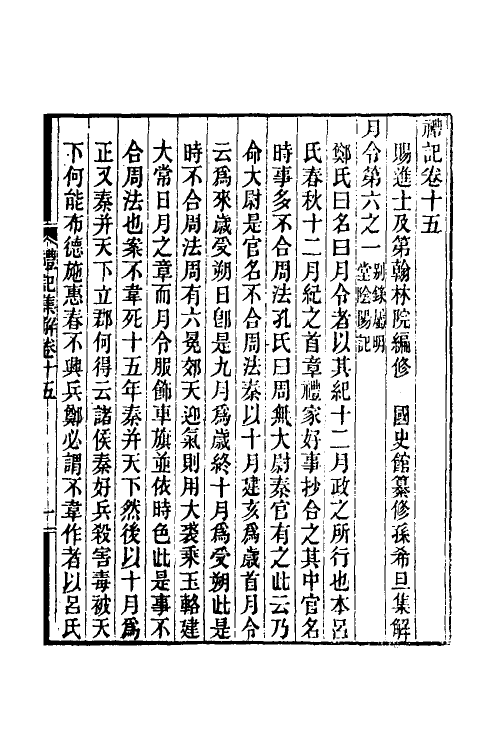 禮記卷十五
賜進士及第翰林院編修　國史館纂修孫希旦集解
月令第六之一別錄屬明堂陰陽記
鄭氏曰名曰月令者以其紀十二月政之所行也本呂
氏春秋十二月紀之首章禮家好事抄合之其中官名
時事多不合周法孔氏曰周無大尉秦官有之此云乃
命大尉是官名不合周法秦以十月建亥爲歲首月令
云爲來歲受朔日卽是九月爲歲終十月爲受朔此是
時不合周法周有六冕郊天迎氣則用大裘乘玉輅建
大常日月之章而月令服飾車旗並依時色此是事不
合周法也案不韋死十五年秦并天下然後以十月爲
正又秦并天下立郡何得云諸侯秦好兵殺害毒被天
下何能布德施惠春不興兵鄭必謂不韋作者以呂氏
禮記集解卷十五　一